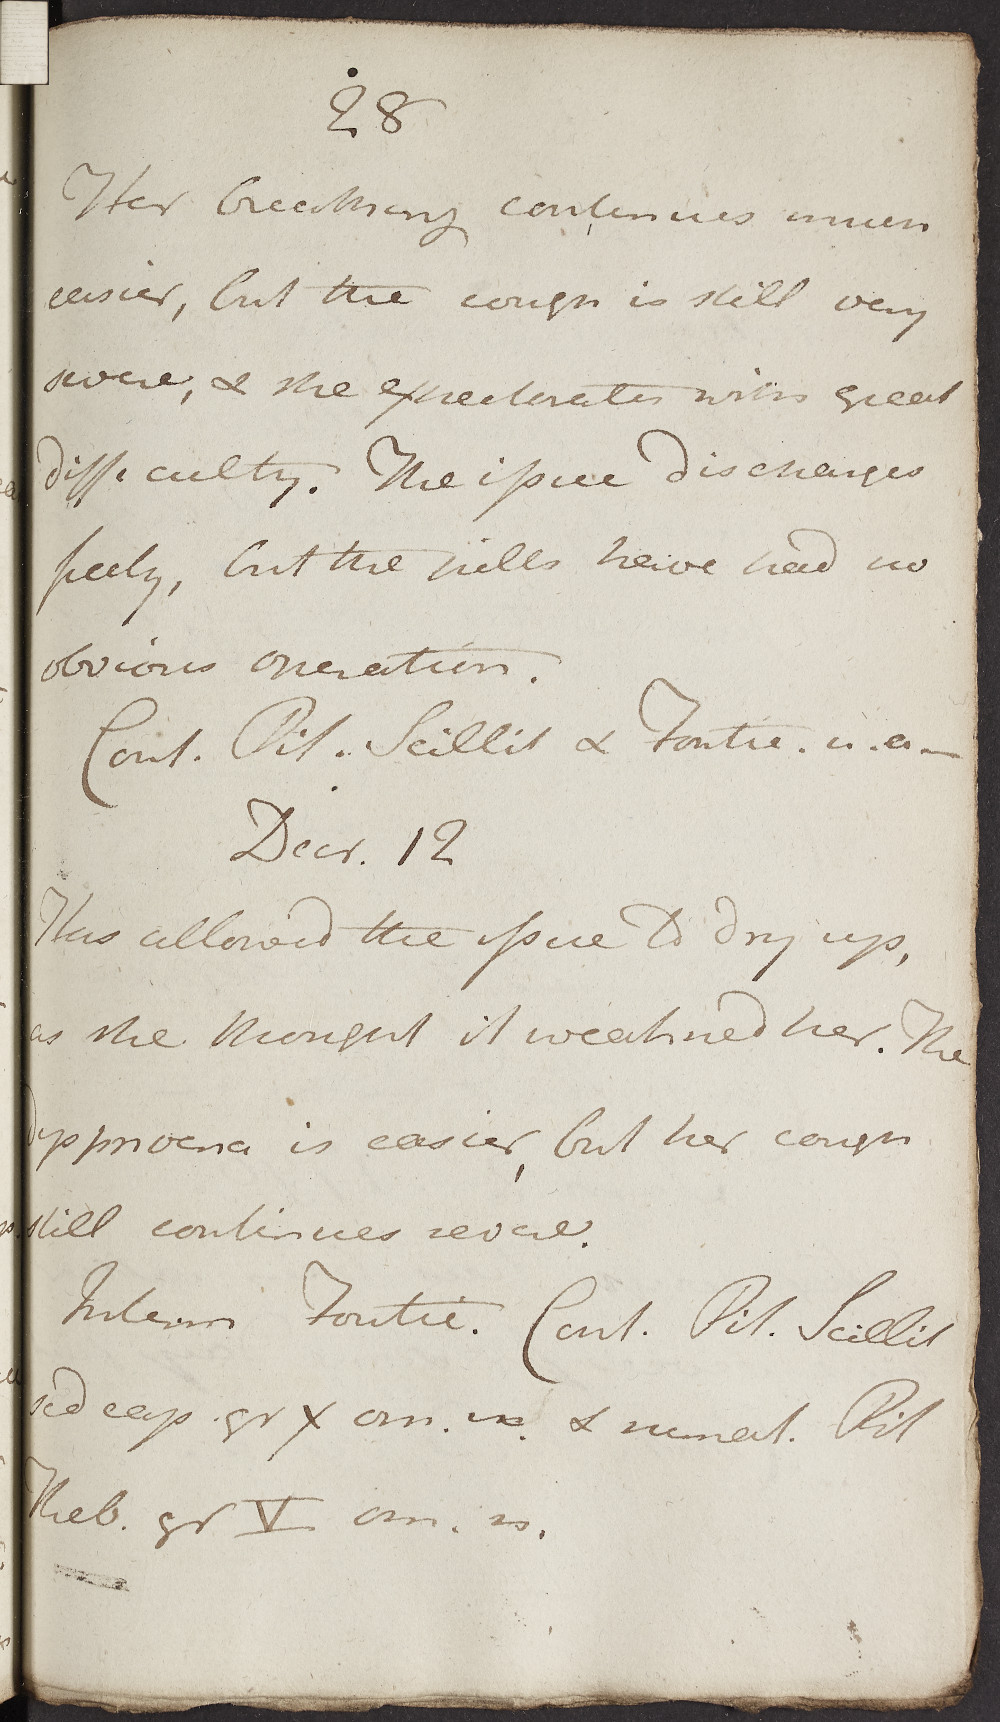 28
Her breathing continues much
easier, but the cough is still very
severe, & she expectorates with great
difficulty. The issue discharges
freely, but the pills have had no
obvious operation.
Cont. Pil. Scillit & Fontic. u.a.
Decr. 12
Has allowed the issue to dry up,
as she thought it weakned her. The
dyspnoea is easier, but her cough
still continues severe.
Interm Fontic. Cont. Pil. Scillit
sed cap. gr X om. m. & sumat. Pil
Theb. gr V om. n.